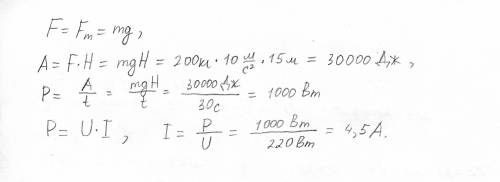 F = Fт = mg,
A = F·H = mgH = 200кг · 10 м/с² · 15м = 30000 Дж,
P = A/t = mgH/t = 30000 Дж/30с = 1000 Вт
P = U·I, I = P/U = 1000 Вт/220Вт = 4,5А.